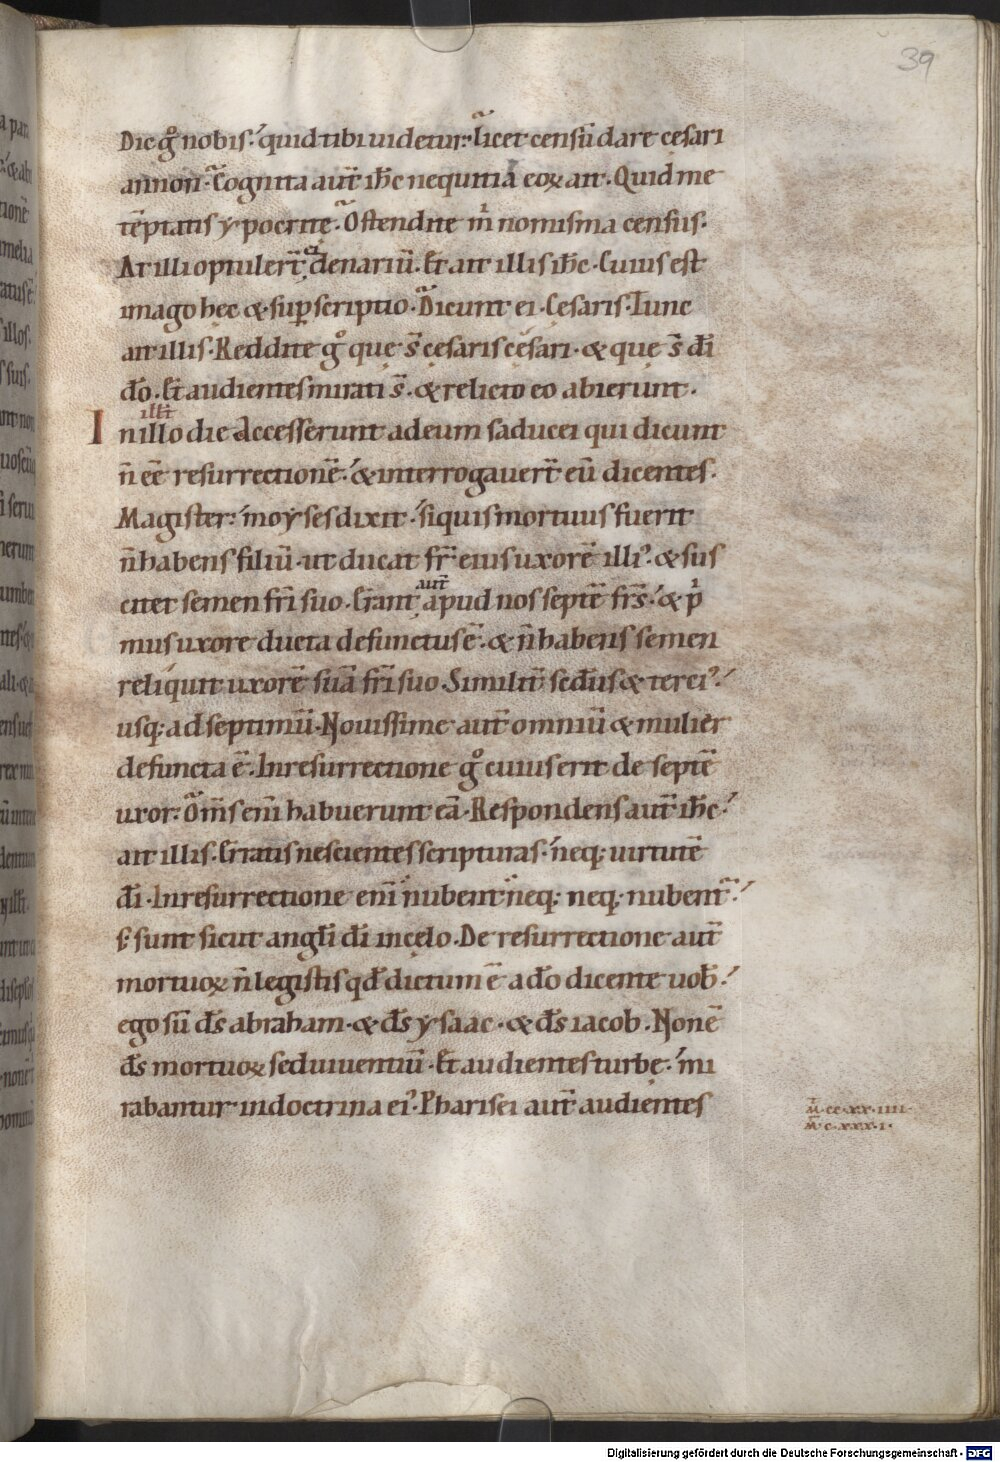 39
Dic gͦ nobis. quid tibi uidetur. licet censū dare cesari
an non. Cognita aut̄ ih̄c nequitia eoꝝ ait. Quid me
tēptatis ypocritę. Ostendite m̄ nomisma census.
At illi optuler̄t ei denariū. Et ait illis ih̄c. Cuius est
imago hęc & sup̄scriptio. Dicunt ei. Cęsaris. Tunc
ait illis. Reddite gͦ quę s̄ cęsaris cęsari. & quę s̄ dī
dō. Et audientes mirati s̄. & relicto eo abierunt.
In illo die Accesserunt ad eum saducei qui dicunt
n̄ eē resurrectionē. & interrogauer̄t eū dicentes.
Magister. moyses dixit. si quis mortuus fuerit
n̄ habens filiū. ut ducat fr̄ eius uxorē illi᾽. & sus
citet semen fr̄i suo. Erant aut̄ apud nos septē fr̄s. & p
mus uxore ducta defunctus ē. & n̄ habens semen
reliquit uxorē suā fr̄i suo. Similit̄ secd̄us & terci᾽.
usq; ad septimū. Nouissime aut̄ omniū & mulier
defuncta ē. In resurrectione gͦ cuius erit de septē
uxor. Om̄s eni̅ habuerunt eā. Respondens aut̄ ih̄c.
ait illis. Erratis nescientes scripturas. neq; uirtutē
dī. In resurrectione eni̅ nubent neq; neq; nubent̄.
s; sunt sicut angl̄i dī in cęlo. De resurrectione aut̄
mortuoꝝ n̄ legistis qd̄ dictum ē a dō dicente uob̄.
ego sū ds̄ abraham. & ds̄ ysaac. & ds̄ iacob. Non ē
ds̄ mortuoꝝ sed uiuentiū. Et audientes turbę. mi
rabantur in doctrina ei᾽. Pharisei aut̄ audientes
M̄. cc. xx. iiii.
M̄. c. xxx. i.
Digitalisierung gefördert durch die Deutsche Forschungsgemeinschaft - DFG